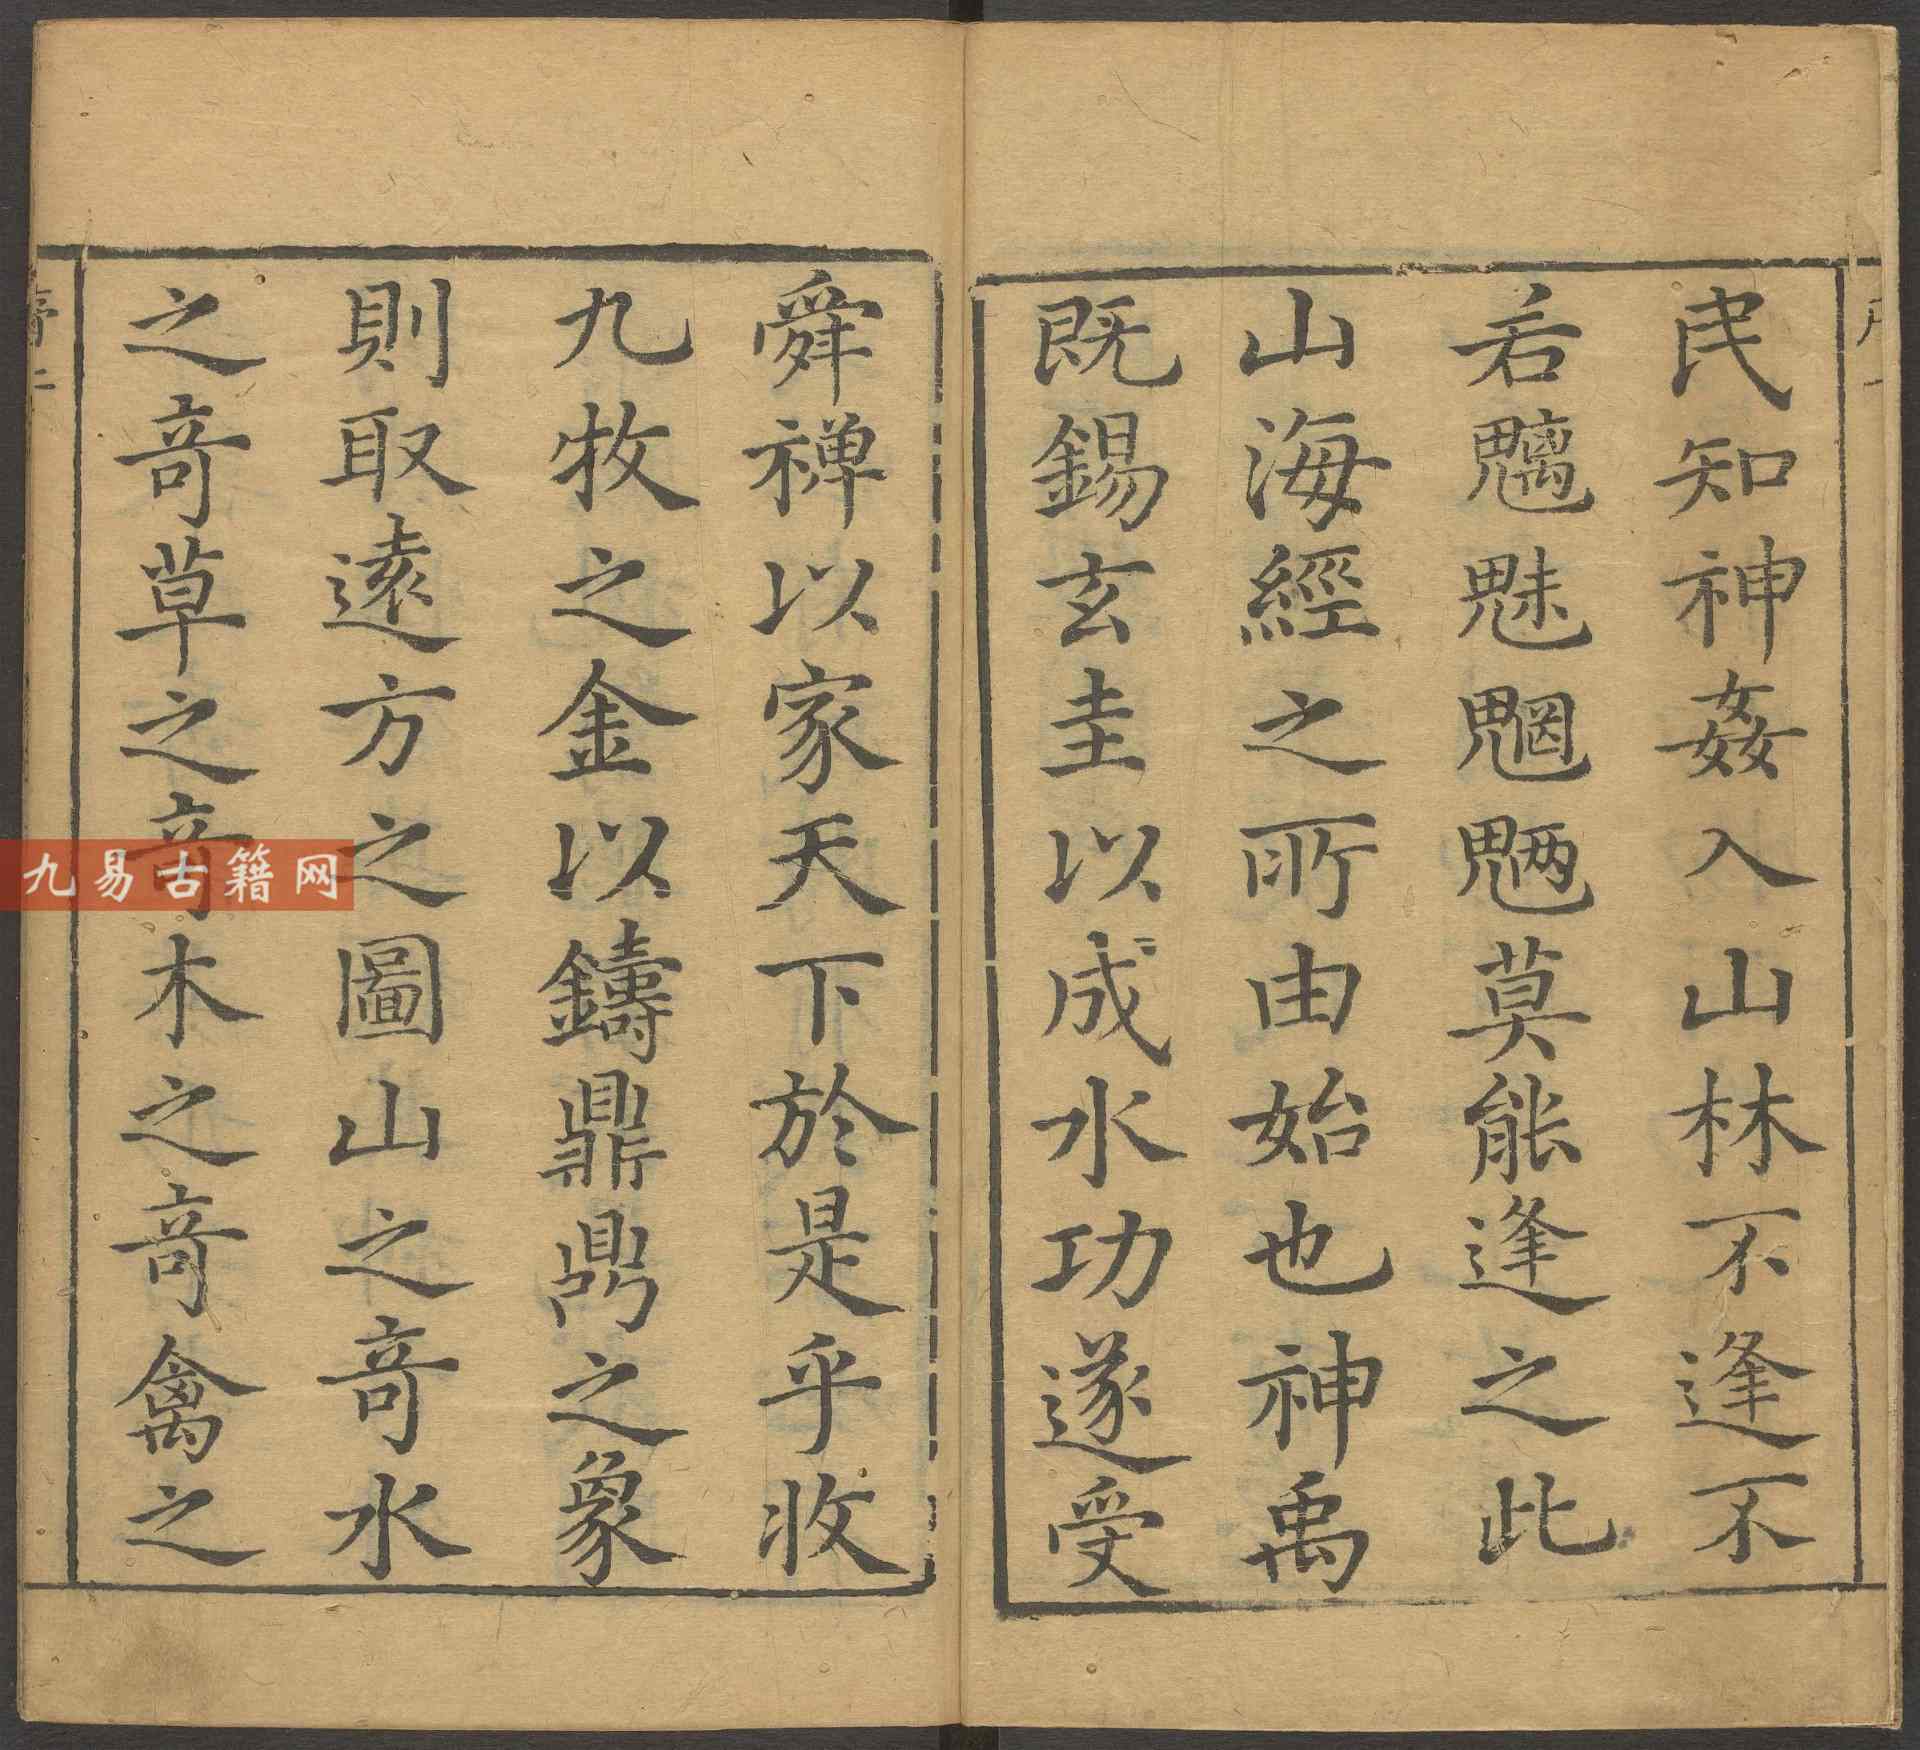 民知神姦入山林不逢不
若魑魅魍魎莫能逢之此
山海經之所由始也神禹
既錫玄圭以成水功遂受
舜禪以家天下於是乎收
九牧之金以鑄鼎鼎之象
則取遠方之圖山之竒水
之竒草之竒木之竒禽之
序二
九易古籍网